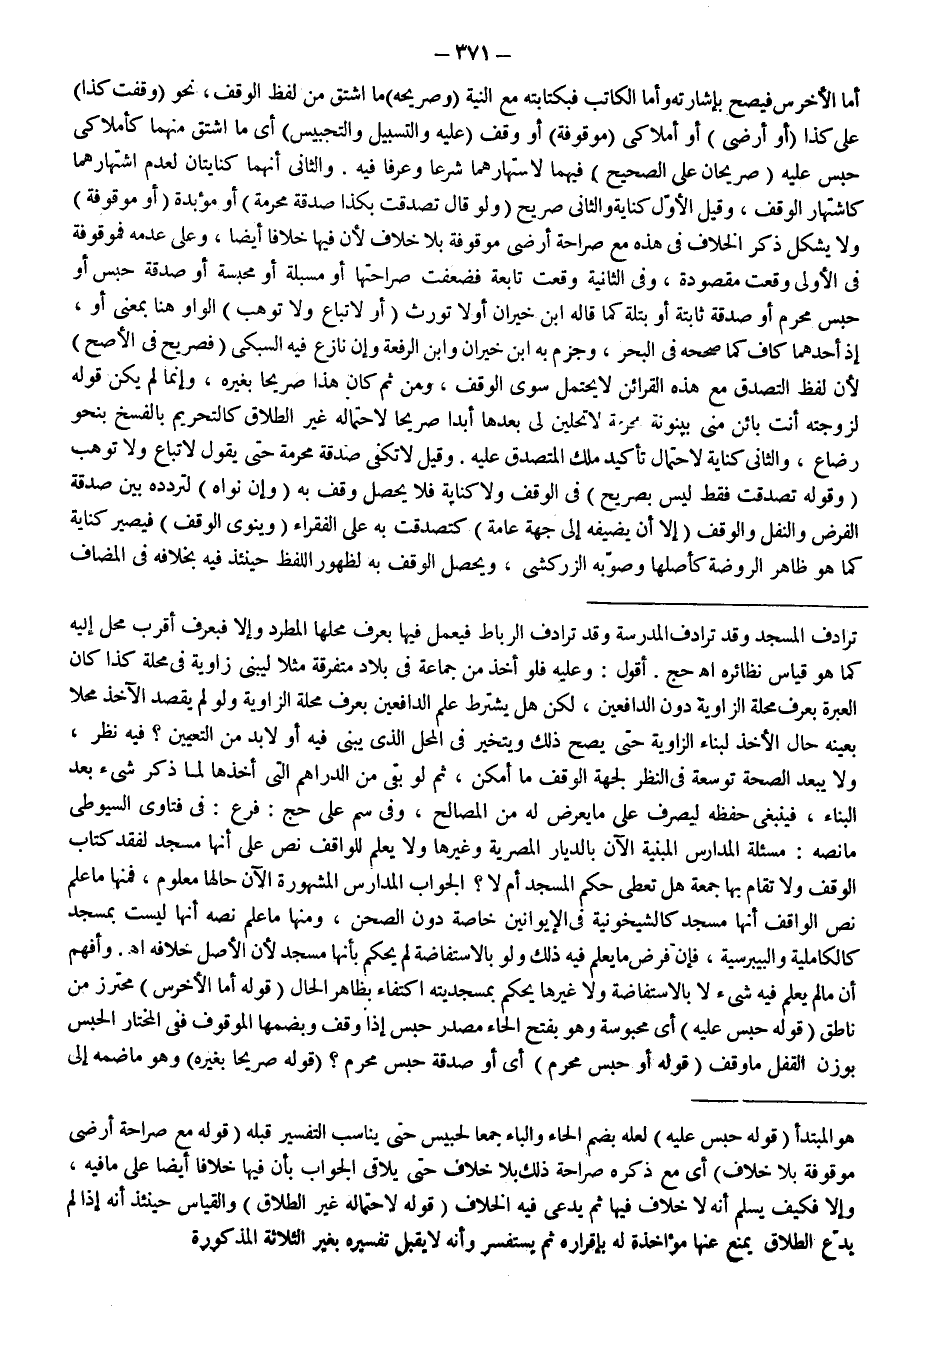 — ٣٧١ —
أما الأخرس فيصح بإشارته وأما الكاتب فبكتابته مع النية (وصريحه) ما اشتق من لفظ الوقف ، نحو (وقفت كذا)
على كذا (أو أرضى ) أو أملاكى (موقوفة) أو وقف (عليه والتسبيل والتحبيس) أى ما اشتق منهما كأملاكى
حبس عليه ( صريحان على الصحيح ) فيهما لاستهارهما شرعا وعرفا فيه . والثانى أنهما كنايتان لعدم اشتهارهما
كاشتهار الوقف ، وقيل الأوّل كناية والثانى صريح (ولو قال تصدقت بكذا صدقة محرمة ) أو مؤبدة (أو موقوفة )
ولا يشكل ذكر الخلاف فى هذه مع صراحة أرضى موقوفة بلا خلاف لأن فيها خلافا أيضا ، وعلى عدمه فموقوفة
فى الأولى وقعت مقصودة ، وفى الثانية وقعت تابعة فضعفت صراحتها أو مسبلة أو محبسة أو صدقة حبس أو
حبس محرم أو صدقة ثابتة أو بتلة كما قاله ابن خيران أولا تورث ( أو لاتباع ولا توهب ) الواو هنا بمعنى أو ،
إذ أحدهما كاف كما صححه فى البحر ، وجزم به ابن خيران وابن الرفعة وإن نازع فيه السبكى ( فصريح فى الأصح )
لأن لفظ التصدق مع هذه القرائن لايحتمل سوى الوقف ، ومن ثم كان هذا صريحا بغيره ، وإنما لم يكن قوله
لزوجته أنت بائن منى بينونة محرمة لاتحلين لى بعدها أبدا صريحا لاحتماله غير الطلاق كالتحريم بالفسخ بنحو
رضاع ، والثانى كناية لاحتمال تأكيد ملك المتصدق عليه . وقيل لاتكفى صدقة محرمة حتى يقول لاتباع ولا توهب
( وقوله تصدقت فقط ليس بصريح ) فى الوقف ولا كناية فلا يحصل وقف به ( وإن نواه ) لتردده بين صدقة
الفرض والنفل والوقف ( إلا أن يضيفه إلى جهة عامة ) كتصدقت به على الفقراء ( وينوى الوقف ) فيصير كناية
كما هو ظاهر الروضة كأصلها وصوّبه الزركشى ، ويحصل الوقف به لظهور اللفظ حينئذ فيه بخلافه فى المضاف
ترادف المسجد وقد ترادف المدرسة وقد ترادف الرباط فيعمل فيها بعرف محلها المطرد وإلا فبعرف أقرب محل إليه
كما هو قياس نظائره اه حج . أقول : وعليه فلو أخذ من جماعة فى بلاد متفرقة مثلا ليبنى زاوية فى محلة كذا كان
العبرة بعرف محلة الزاوية دون الدافعين ، لكن هل يشترط علم الدافعين بعرف محلة الزاوية ولو لم يقصد الآخذ محلا
بعينه حال الأخذ لبناء الزاوية حتى يصح ذلك ويتخير فى المحل الذى يبنى فيه أو لابد من التعيين ؟ فيه نظر ،
ولا يبعد الصحة توسعة فى النظر لجهة الوقف ما أمكن ، ثم لو بقى من الدراهم التى أخذها لما ذكر شىء بعد
البناء ، فينبغى حفظه ليصرف على مايعرض له من المصالح ، وفى سم على حج : فرع : فى فتاوى السيوطى
مانصه : مسئلة المدارس المبنية الآن بالديار المصرية وغيرها ولا يعلم للواقف نص على أنها مسجد لفقد كتاب
الوقف ولا تقام بها جمعة هل تعطى حكم المسجد أم لا ؟ الجواب المدارس المشهورة الآن حالها معلوم ، فمنها ماعلم
نص الواقف أنها مسجد كالشيخونية فى الإيوانين خاصة دون الصحن ، ومنها ماعلم نصه أنها ليست بمسجد
كالكاملية والبيبرسية ، فإن فرض مايعلم فيه ذلك ولو بالاستفاضة لم يحكم بأنها مسجد لأن الأصل خلافه اه . وأفهم
أن مالم يعلم فيه شىء لا بالاستفاضة ولا غيرها يحكم بمسجديته اكتفاء بظاهر الحال ( قوله أما الأخرس ) محترز من
ناطق ( قوله حبس عليه ) أى محبوسة وهو بفتح الحاء مصدر حبس إذا وقف وبضمها الموقوف ففى المختار الحبس
بوزن القفل ماوقف ( قوله أو حبس محرم ) أى أو صدقة حبس محرم ؟ (قوله صريحا بغيره) وهو ماضمه إلى
هو المبتدأ ( قوله حبس عليه ) لعله بضم الحاء والباء جمعا لحبيس حتى يناسب التفسير قبله ( قوله مع صراحة أرضى
موقوفة بلا خلاف) أى مع ذكره صراحة ذلك بلا خلاف حتى يلاقى الجواب بأن فيها خلافا أيضا على مافيه ،
وإلا فكيف يسلم أنه لا خلاف فيها ثم يدعى فيه الخلاف ( قوله لاحتماله غير الطلاق ) والقياس حينئذ أنه إذا لم
يدّع الطلاق يمنع عنها مؤاخذة له بإقراره ثم يستفسر وأنه لايقبل تفسيره بغير الثلاثة المذكورة